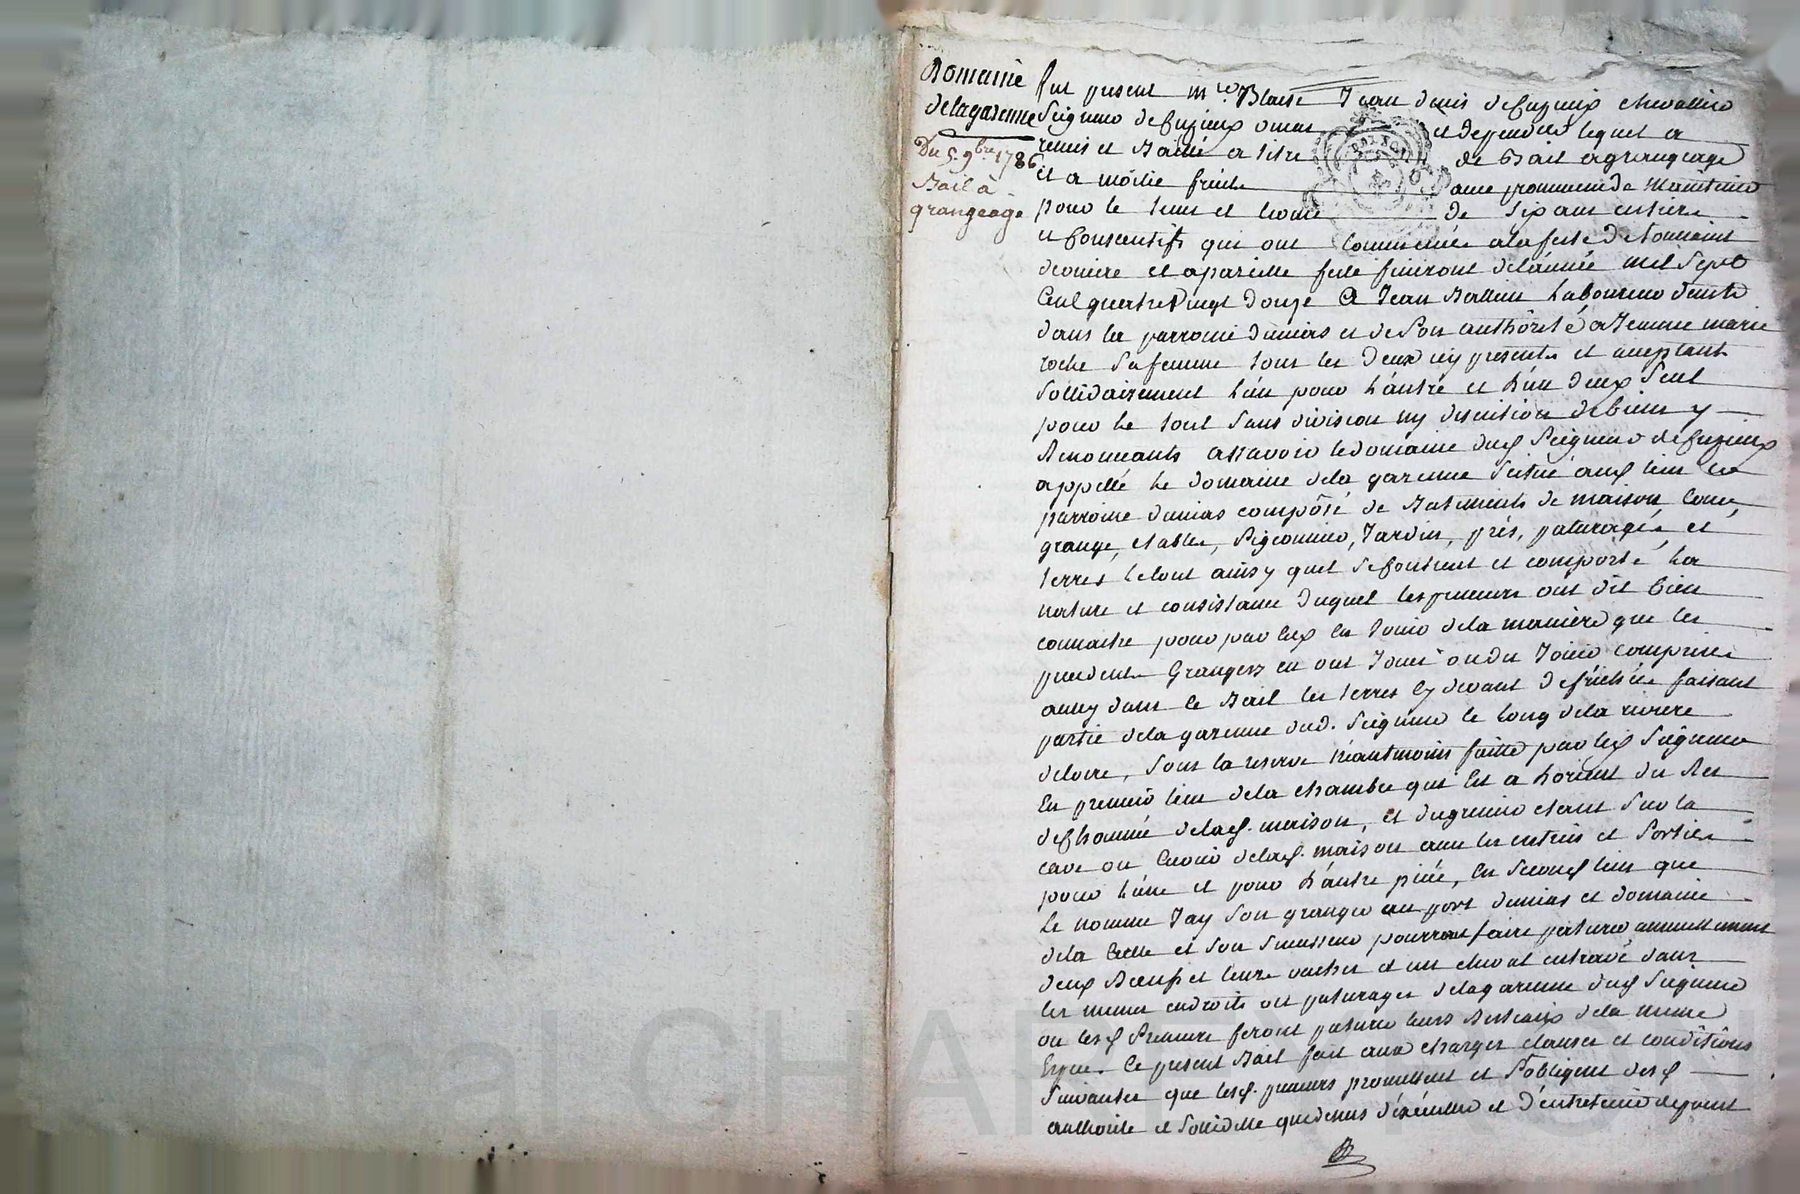 Domaine
delagarenne
Du 5. 9bre 1786
Bail à
grangeage
fut present mre Blaise Jean denis defuzieux chevallier
Seigneur defuzieux et dependces lequel a
remis et Baillé a titre de Bail agrangeage
et a moitié fruits avec promesse de maintenir
pour le tems et terme de six ans entiers
et Consecutifs qui ont commencées alafeste detoussaint
derniere et apareille feste finiront delannée mil Sept
Cent quatre Vingt douze a Jean habitant
dans la parroisse et deson authôrité a Jeanne marie
roche Safemme tous les deux icy presents et acceptants
Sollidairement l'un pour l'autre et l'un deux Seul
pour le tout Sans division ny discution debiens y
Renonceants assavoir ledomaine dud Seigneur defuzieux
appellé le domaine dela garenne Scitué aud lieu et
parroisse composé de Batiments de maison, Cour,
grange, etables, Pigeonnier, Jardin, prés, paturages et
terres letout ainsy quil Seconsient et comporte la
nature et consistance duquel lespreneurs ont dit bien
connaitre pour par eux en Jouir dela maniere que les
precedents Grangers en ont Joui ou du Jouir comprises
aussy dans ce Bail les terres cy devant defrichées faisant
partie dela garenne dud. Seigneur le long dela riviere
deloire, Sous la reserve néantmoins faitte par led Seigneur
En premier lieu dela chambre qui Est a Lorient du Rez
delad. maison, et dugrenier etant Sur la
cave ou Cuvier delad. maison avec les entrées et Sorties
pour l'une et pour l'autre piéce, En Second lieu que
le nommé Jay Son granger au port et domaine
dela et Son Successeur pourront faire paturer annuellement
deux Boeufs et leurs vaches et un cheval entravé dans
les memes endroits ou paturages delagarenne dud Seigneur
ou lesd Preneurs feront paturer leurs Bestiaux dela meme
Espece. Ce present Bail fait aux charges clauses et conditions
Suivantes que lesd. preneurs promettent et Sobligent desd
authorité et Sollidité quedessus d'exécuter et d'entretenir depoint